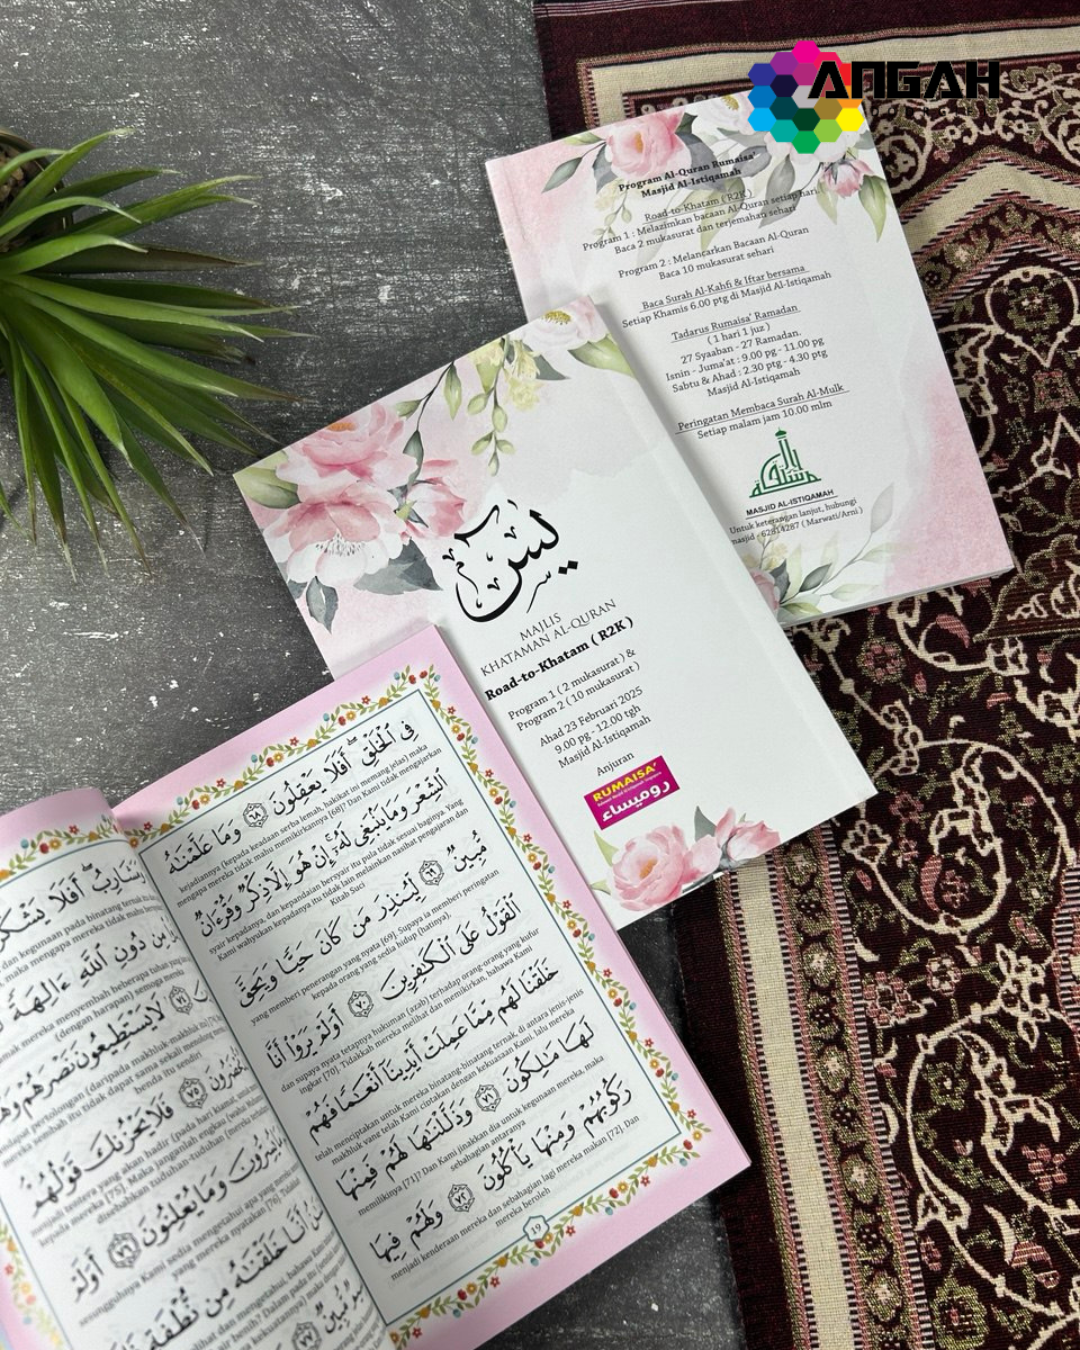 ANGAH
Program Al-Quran Rumaisa'
Masjid Al-Istiqamah
Road-to-Khatam ( R2K )
Program 1 : Melazimkan bacaan Al-Quran setiap hari
Baca 2 mukasurat dan terjemahan sehari
Program 2 : Melancarkan Bacaan Al-Quran
Baca 10 mukasurat sehari
Baca Surah Al-Kahfi & Iftar bersama
Setiap Khamis 6.00 ptg di Masjid Al-Istiqamah
Tadarus Rumaisa' Ramadan
( 1 hari 1 juz )
27 Syaaban - 27 Ramadan.
Isnin - Juma'at : 9.00 pg - 11.00 pg
Sabtu & Ahad : 2.30 ptg - 4.30 ptg
Masjid Al-Istiqamah
Peringatan Membaca Surah Al-Mulk
Setiap malam jam 10.00 mlm
MASJID AL-ISTIQAMAH
Untuk keterangan lanjut, hubungi
masjid - 62814287 ( Marwati/Arni )
يس
MAJLIS
KHATAMAN AL-QURAN
Road-to-Khatam ( R2K )
Program 1 ( 2 mukasurat ) &
Program 2 ( 10 mukasurat )
Ahad 23 Februari 2025
9.00 pg - 12.00 tgh
Masjid Al-Istiqamah
Anjuran
RUMAISA'
روميساء
فِى ٱلْخَلْقِ ۖ أَفَلَا يَعْقِلُونَ ٦٨ وَمَا عَلَّمْنَـٰهُ
kejadiannya (kepada keadaan serba lemah, hakikat ini memang jelas) maka
mengapa mereka tidak mahu memikirkannya [68]? Dan Kami tidak mengajarkan
ٱلشِّعْرَ وَمَا يَنۢبَغِى لَهُۥٓ ۚ إِنْ هُوَ إِلَّا ذِكْرٌ وَقُرْءَانٌ
syair kepadanya, dan kepandaian bersyair itu pula tidak sesuai baginya. Yang
Kami wahyukan kepadanya itu tidak lain melainkan nasihat pengajaran dan
Kitab Suci
مُّبِينٌ ٦٩ لِّيُنذِرَ مَن كَانَ حَيًّا وَيَحِقَّ
yang memberi penerangan yang nyata [69]. Supaya ia memberi peringatan
kepada orang yang sedia hidup (hatinya),
ٱلْقَوْلُ عَلَى ٱلْكَـٰفِرِينَ ٧٠ أَوَلَمْ يَرَوْا۟ أَنَّا
dan supaya nyata tetapnya hukuman (azab) terhadap orang-orang yang kufur
ingkar [70]. Tidakkah mereka melihat dan memikirkan, bahawa Kami
خَلَقْنَا لَهُم مِّمَّا عَمِلَتْ أَيْدِينَآ أَنْعَـٰمًا فَهُمْ
telah menciptakan untuk mereka binatang-binatang ternak, di antara jenis-jenis
makhluk yang telah Kami ciptakan dengan kekuasaan Kami, lalu mereka
لَهَا مَـٰلِكُونَ ٧١ وَذَلَّلْنَـٰهَا لَهُمْ فَمِنْهَا
memilikinya [71]? Dan Kami jinakkan dia untuk kegunaan mereka, maka
sebahagian antaranya
رَكُوبُهُمْ وَمِنْهَا يَأْكُلُونَ ٧٢ وَلَهُمْ فِيهَا
menjadi kenderaan mereka dan sebahagian lagi mereka makan [72]. Dan
mereka beroleh
19
أَفَلَا
dan kegunaan pada binatang ternak itu
maka mengapa mereka tidak mahu
مِن دُونِ ٱللَّهِ ءَالِهَةً
mereka menyembah beberapa tuhan
(dengan harapan) semoga
لَا يَسْتَطِيعُونَ نَصْرَهُمْ
pertolongan (daripada makhluk-makhluk
itu tidak dapat sama sekali menolong
benda itu sendiri
٧٥ فَلَا يَحْزُنكَ قَوْلُهُمْ
tentera yang akan hadir (pada hari kiamat,
[75]. Maka janganlah engkau (wahai
disebabkan tuduhan-tuduhan (mereka
وَمَا يُعْلِنُونَ ٧٦ أَوَلَمْ
sesungguhnya Kami sedia mengetahui apa yang
yang mereka nyatakan [76]? Tidakkah
أَنَّا خَلَقْنَـٰهُ مِن نُّطْفَةٍ
melihat dan mengetahui, bahawa Kami
مُّبِينٌ ٧٧